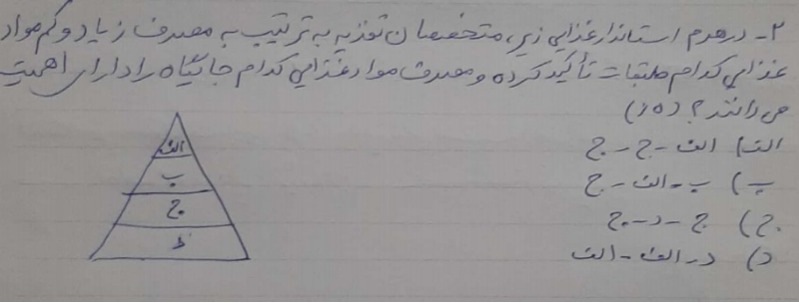 ۲- در هرم استاندار غذایی زیر، متخصصان تغذیه به ترتیب به مصرف زیاد و کم مواد
غذایی کدام طبقات تأکید کرده و مصرف مواد غذایی کدام جایگاه را دارای اهمیت
می دانند؟ (۵ر)
الف) الف - ج - ج
ب) ب - الف - ج
ج) ج - د - ج
د) د - الف - الف
الف
ب
ج
د